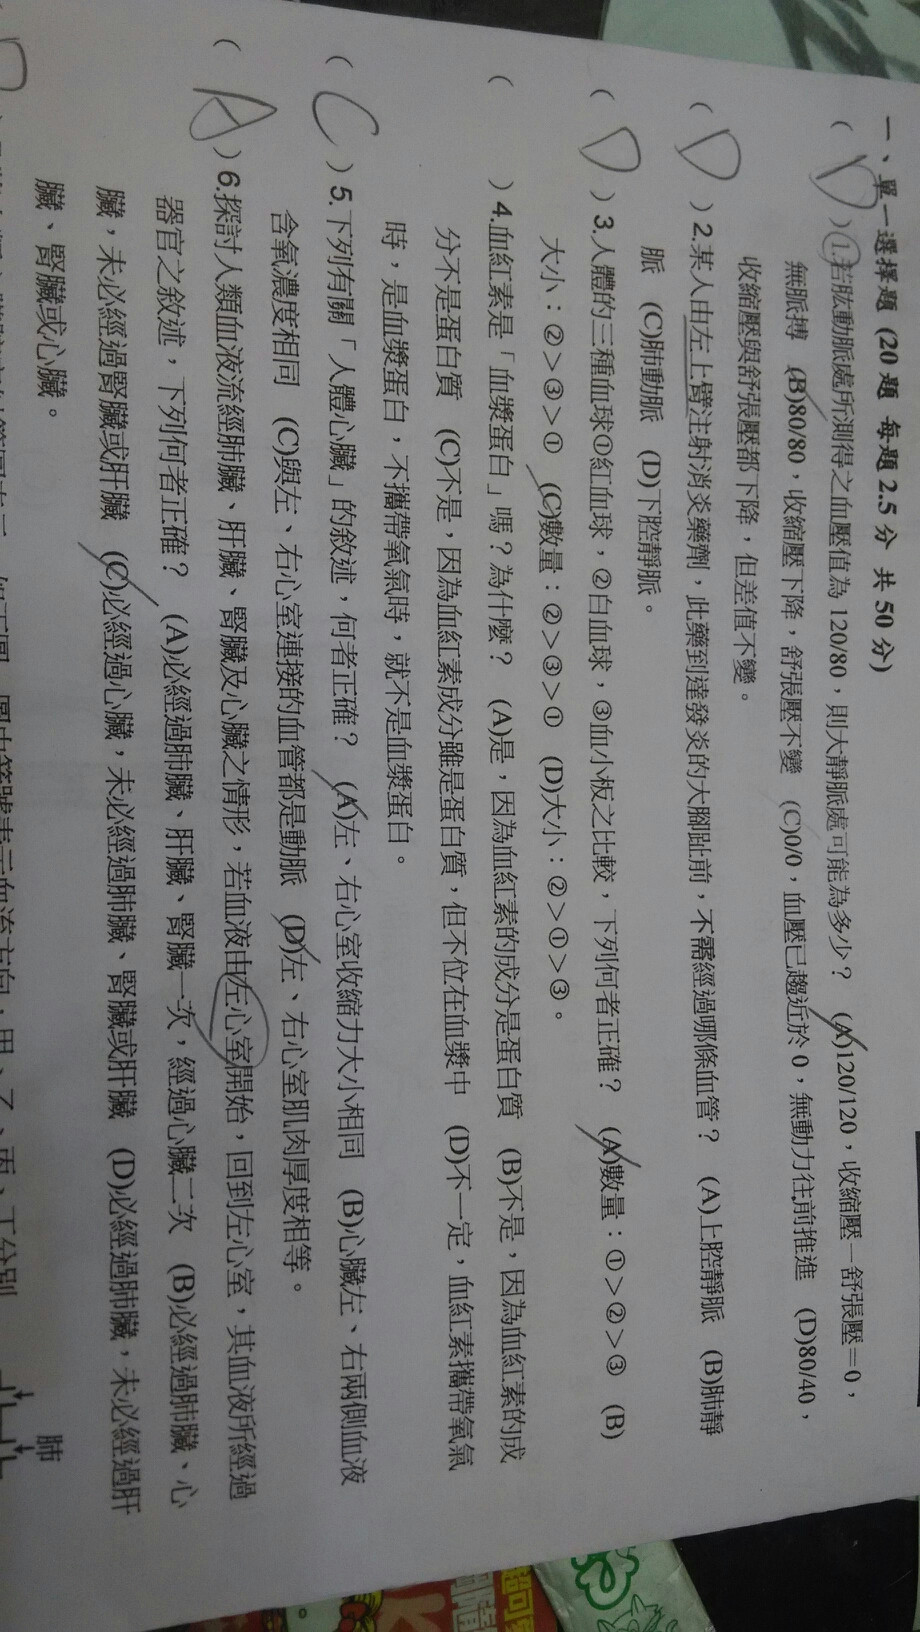 一、單一選擇題 (20 題 每題 2.5 分 共 50 分)
( D )1.若肱動脈處所測得之血壓值為 120/80，則大靜脈處可能為多少？ (A)120/120，收縮壓－舒張壓＝0，
無脈搏 (B)80/80，收縮壓下降，舒張壓不變 (C)0/0，血壓已趨近於 0，無動力往前推進 (D)80/40，
收縮壓與舒張壓都下降，但差值不變。
( D )2.某人由左上臂注射消炎藥劑，此藥到達發炎的大腳趾前，不需經過哪條血管？ (A)上腔靜脈 (B)肺靜
脈 (C)肺動脈 (D)下腔靜脈。
( D )3.人體的三種血球①紅血球，②白血球，③血小板之比較，下列何者正確？ (A)數量：①＞②＞③ (B)
大小：②＞③＞① (C)數量：②＞③＞① (D)大小：②＞①＞③。
( )4.血紅素是「血漿蛋白」嗎？為什麼？ (A)是，因為血紅素的成分是蛋白質 (B)不是，因為血紅素的成
分不是蛋白質 (C)不是，因為血紅素成分雖是蛋白質，但不位在血漿中 (D)不一定，血紅素攜帶氧氣
時，是血漿蛋白，不攜帶氧氣時，就不是血漿蛋白。
( C )5.下列有關「人體心臟」的敘述，何者正確？ (A)左、右心室收縮力大小相同 (B)心臟左、右兩側血液
含氧濃度相同 (C)與左、右心室連接的血管都是動脈 (D)左、右心室肌肉厚度相等。
( A )6.探討人類血液流經肺臟、肝臟、腎臟及心臟之情形，若血液由左心室開始，回到左心室，其血液所經過
器官之敘述，下列何者正確？ (A)必經過肺臟、肝臟、腎臟一次，經過心臟二次 (B)必經過肺臟、心
臟，未必經過腎臟或肝臟 (C)必經過心臟，未必經過肺臟、腎臟或肝臟 (D)必經過肺臟，未必經過肝
臟、腎臟或心臟。
肺